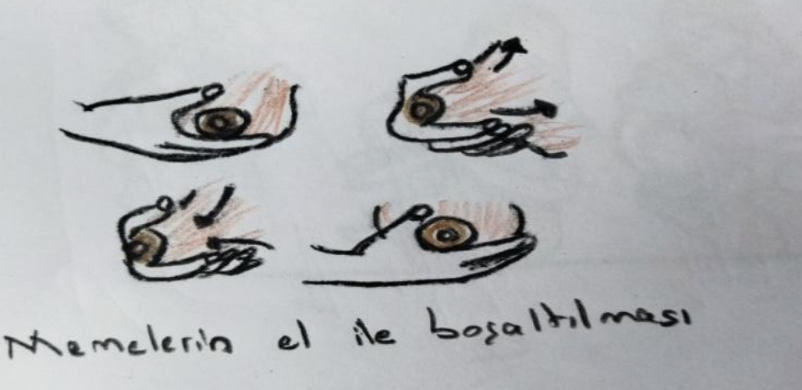 Memelerin el ile boşaltılması